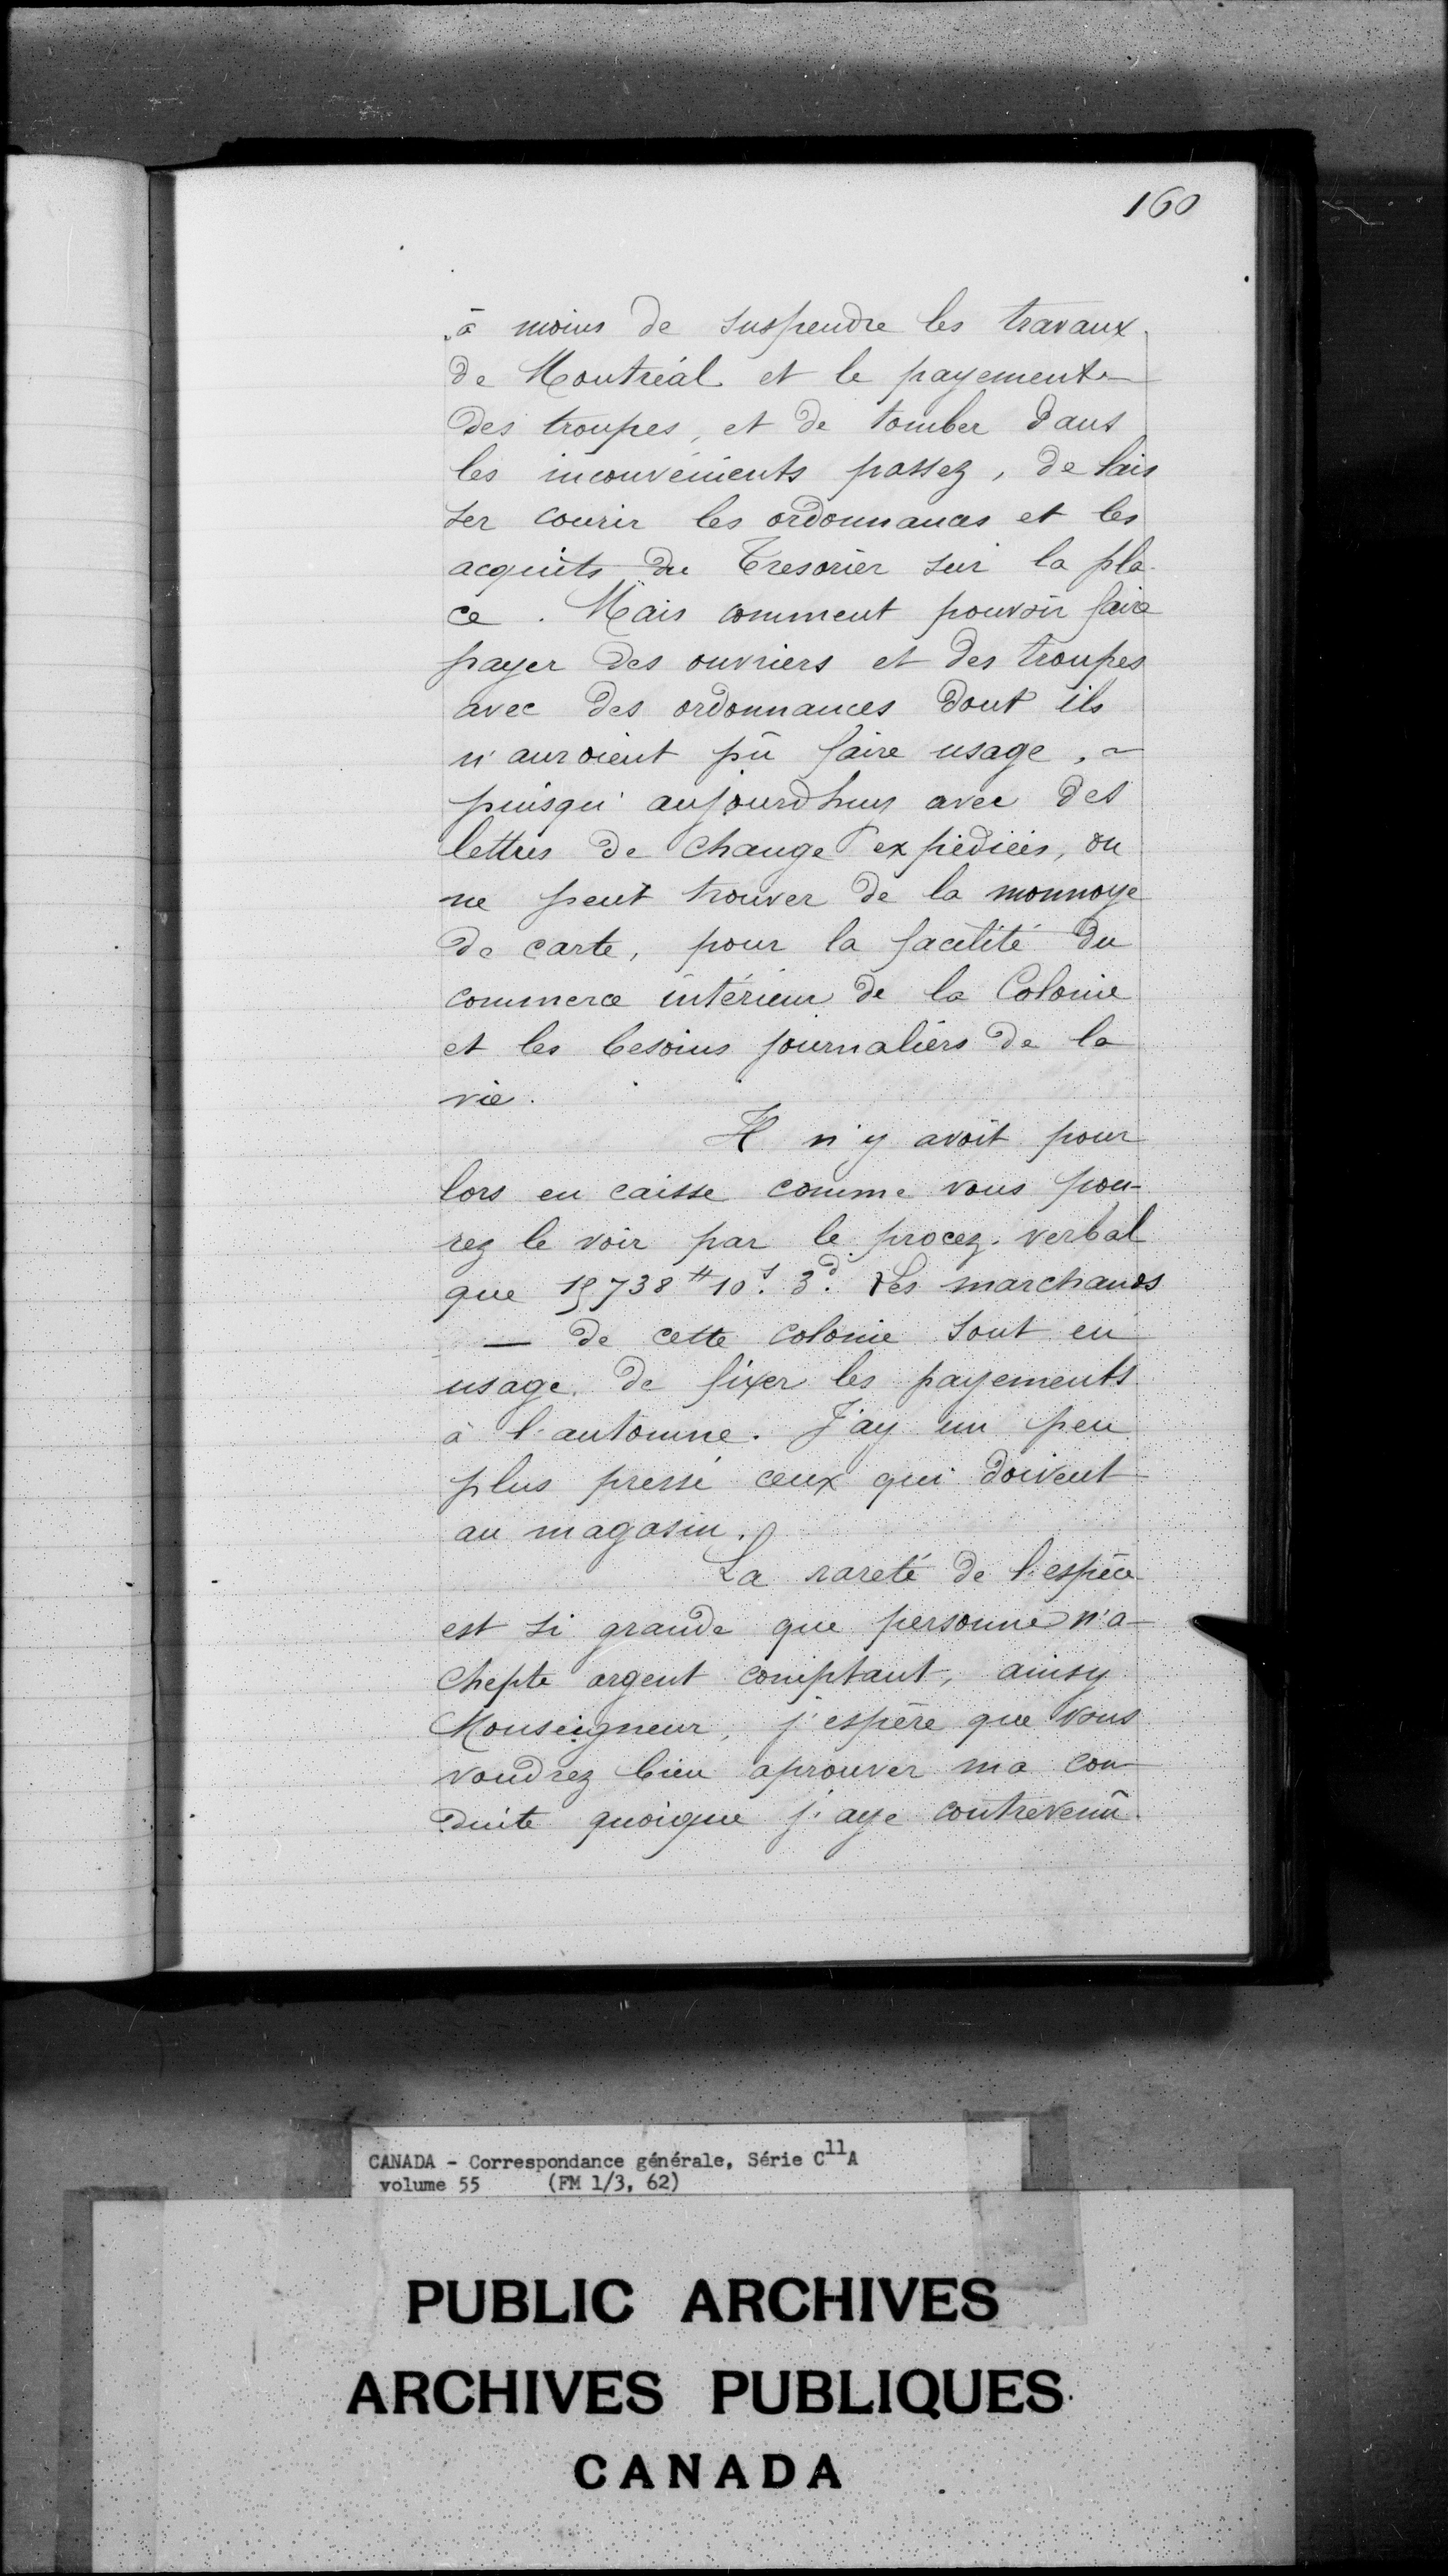 160
à moins de suspendre les travaux
de Montréal et le payement
des troupes, et de tomber dans
les inconvénients passez, de lais
ser courir les ordonnances et les
acquits du Tresorier sur la pla-
ce. Mais comment pouvoir faire
payer des ouvriers et des troupes
avec des ordonnances dont ils
n'auroient pû faire usage,
puisqu'aujourdhuy avec des
lettres de change expédiées, on
ne peut trouver de la monnoye
de carte, pour la facilité du
commerce intérieur de la Colonie
et les besoins journaliers de la
vie.
Il n'y avoit pour
lors en caisse comme vous pou-
rez le voir par le procez-verbal
que 19738# 10s. 3d. Les marchands
— de cette colonie sont en
usage de fixer les payements
à l'automne. J'ay un peu
plus pressé ceux qui doivent
au magasin.
La rareté de l'espèce
est si grande que personne n'a-
chepte argent comptant, ainsy
Monseigneur, j'espère que vous
voudrez bien aprouver ma con-
duite quoique j'aye contrevenû
CANADA - Correspondance générale, Série C11A
volume 55 (FM 1/3, 62)
PUBLIC ARCHIVES
ARCHIVES PUBLIQUES
CANADA